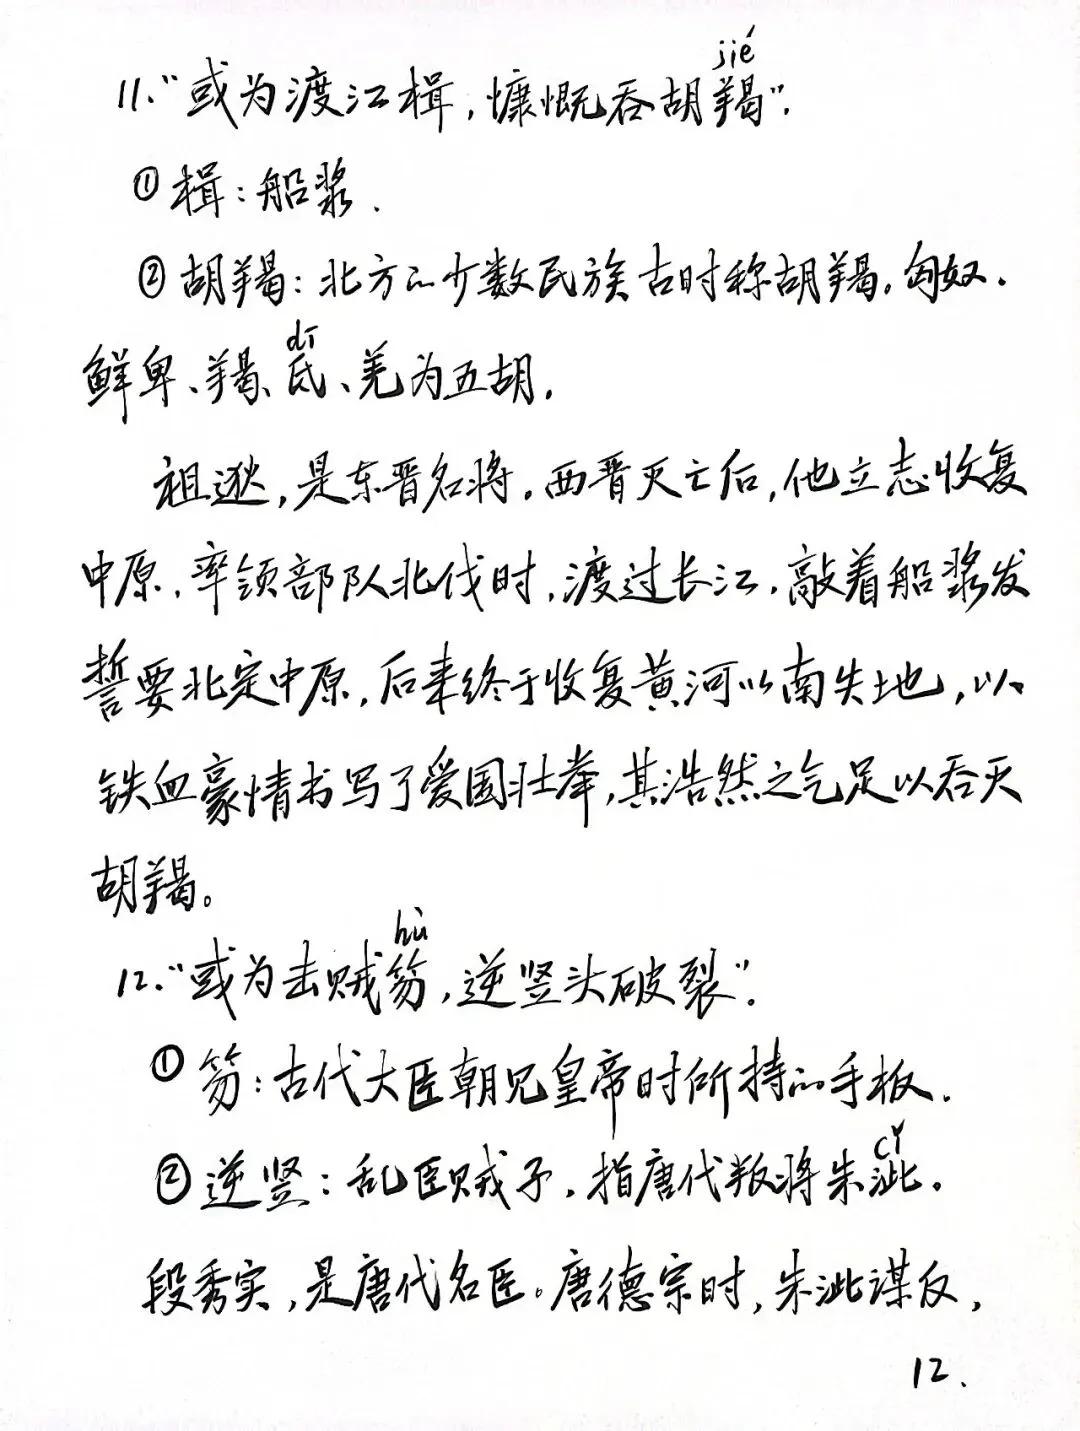 jié
11.“或为渡江楫,慷慨吞胡羯”.
①楫:船桨.
②胡羯:北方的少数民族古时称胡羯,匈奴.
dī
鲜卑、羯、氐、羌为五胡.
祖逖,是东晋名将.西晋灭亡后,他立志收复
中原,率领部队北伐时,渡过长江,敲着船桨发
誓要北定中原,后来终于收复黄河以南失地,以
铁血豪情书写了爱国壮举,其浩然之气足以吞灭
胡羯。
hù
12.“或为击贼笏,逆竖头破裂”.
①笏:古代大臣朝见皇帝时所持的手板.
cǐ
②逆竖:乱臣贼子,指唐代叛将朱泚.
段秀实,是唐代名臣。唐德宗时,朱泚谋反,
12.